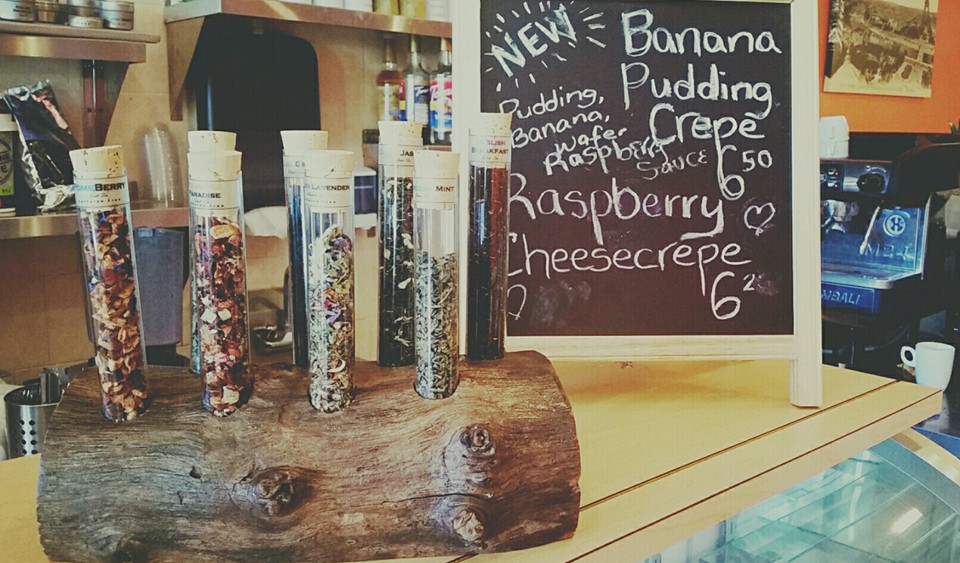 NEW
Banana
Pudding
Crepe
6 50
Pudding,
Banana,
wafer
Raspberry
Sauce
Raspberry
Cheesecrepe
6
BERRY
LAVENDER
MINT
BREAKFAST